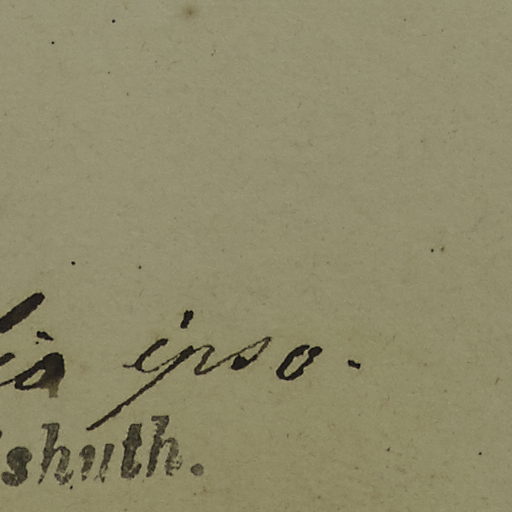 ipso.
shuth.